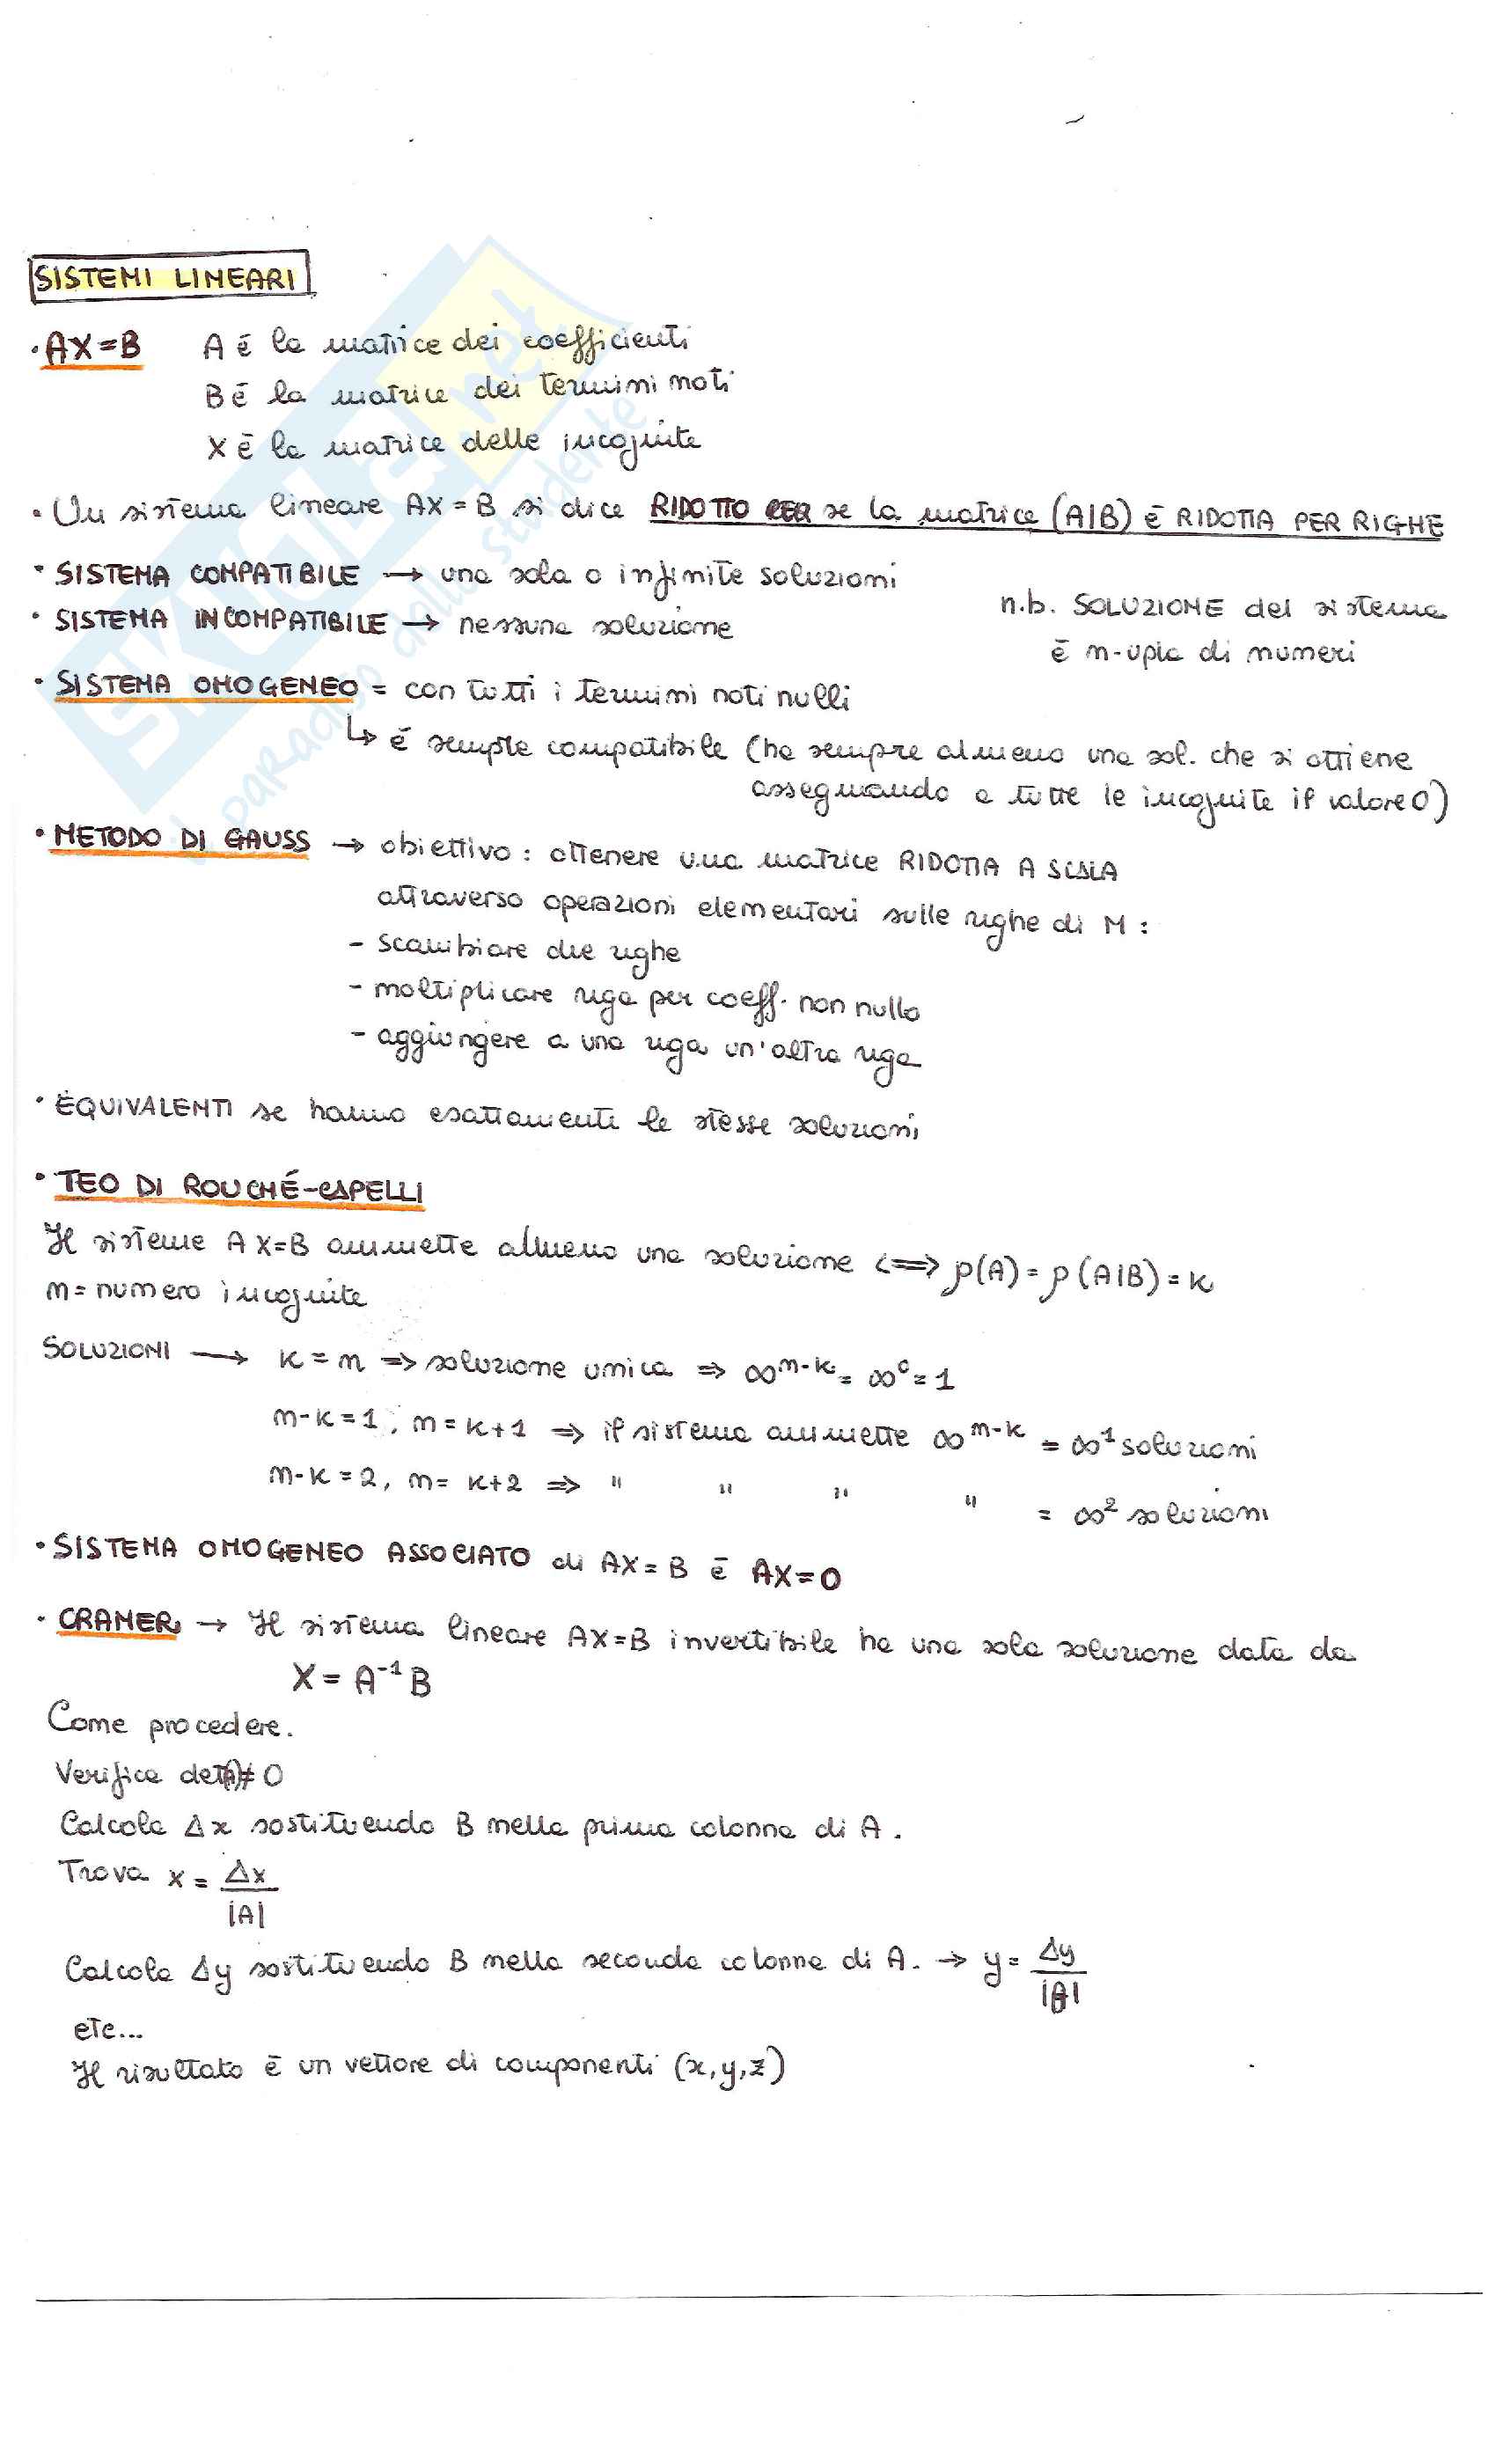 SISTEMI LINEARI
• AX=B A é la matrice dei coefficienti
B é la matrice dei termini noti
X é la matrice delle incognite
• Un sistema lineare AX = B si dice RIDOTTO PER se la matrice (A|B) é RIDOTTA PER RIGHE
• SISTEMA COMPATIBILE → una sola o infinite soluzioni
• SISTEMA INCOMPATIBILE → nessuna soluzione
n.b. SOLUZIONE del sistema
é n-upla di numeri
• SISTEMA OMOGENEO = con tutti i termini noti nulli
↳ é sempre compatibile (ha sempre almeno una sol. che si ottiene
assegnando a tutte le incognite il valore 0)
• METODO DI GAUSS → obiettivo: ottenere una matrice RIDOTTA A SCALA
attraverso operazioni elementari sulle righe di M:
- scambiare due righe
- moltiplicare riga per coeff. non nullo
- aggiungere a una riga un'altra riga
• EQUIVALENTI se hanno esattamente le stesse soluzioni
• TEO DI ROUCHÉ-CAPELLI
Il sistema AX=B ammette almeno una soluzione <=> ρ(A) = ρ(A|B) = k
n = numero incognite
SOLUZIONI → k = n => soluzione unica => ∞^n-k = ∞^0 = 1
n-k = 1, n = k+1 => il sistema ammette ∞^n-k = ∞^1 soluzioni
n-k = 2, n = k+2 => " " " " = ∞^2 soluzioni
• SISTEMA OMOGENEO ASSOCIATO di AX = B é AX=0
• CRAMER → Il sistema lineare AX=B invertibile ha una sola soluzione data da
X = A^-1 B
Come procedere.
Verifica det(A)≠0
Calcola Δx sostituendo B nella prima colonna di A.
Trova x = Δx/|A|
Calcola Δy sostituendo B nella seconda colonna di A. → y = Δy/|A|
etc...
Il risultato é un vettore di componenti (x,y,z)
SKUOLA.net
il paradiso dello studente